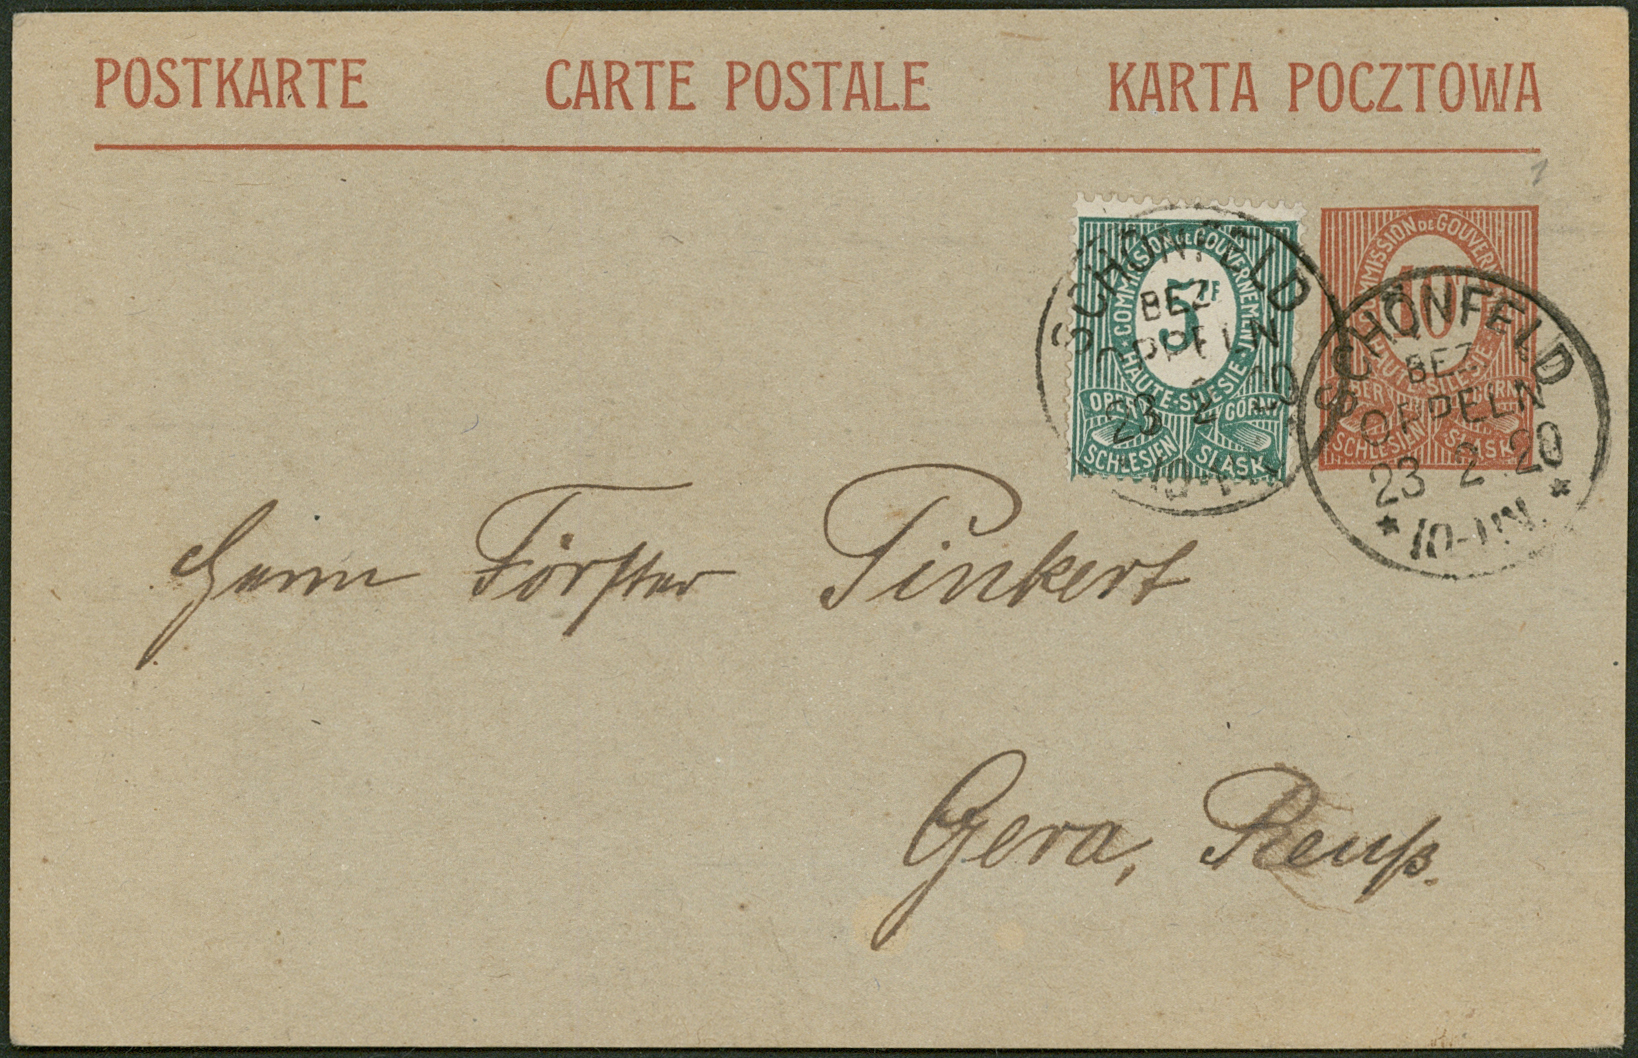 POSTKARTE CARTE POSTALE KARTA POCZTOWA
COMMISSION DE GOUVERNEMENT
HAUTE-SILESIE
5 PF
OBER
SCHLESIEN
GÓRNY
ŚLĄSK
COMMISSION DE GOUVERNEMENT
HAUTE-SILESIE
10
OBER
SCHLESIEN
GÓRNY
ŚLĄSK
SCHÖNFELD
BEZ.
OPPELN
23 2 20
SCHÖNFELD
BEZ.
OPPELN
23 2 20
Herrn Förster Pinkert
Gera, Reuß.